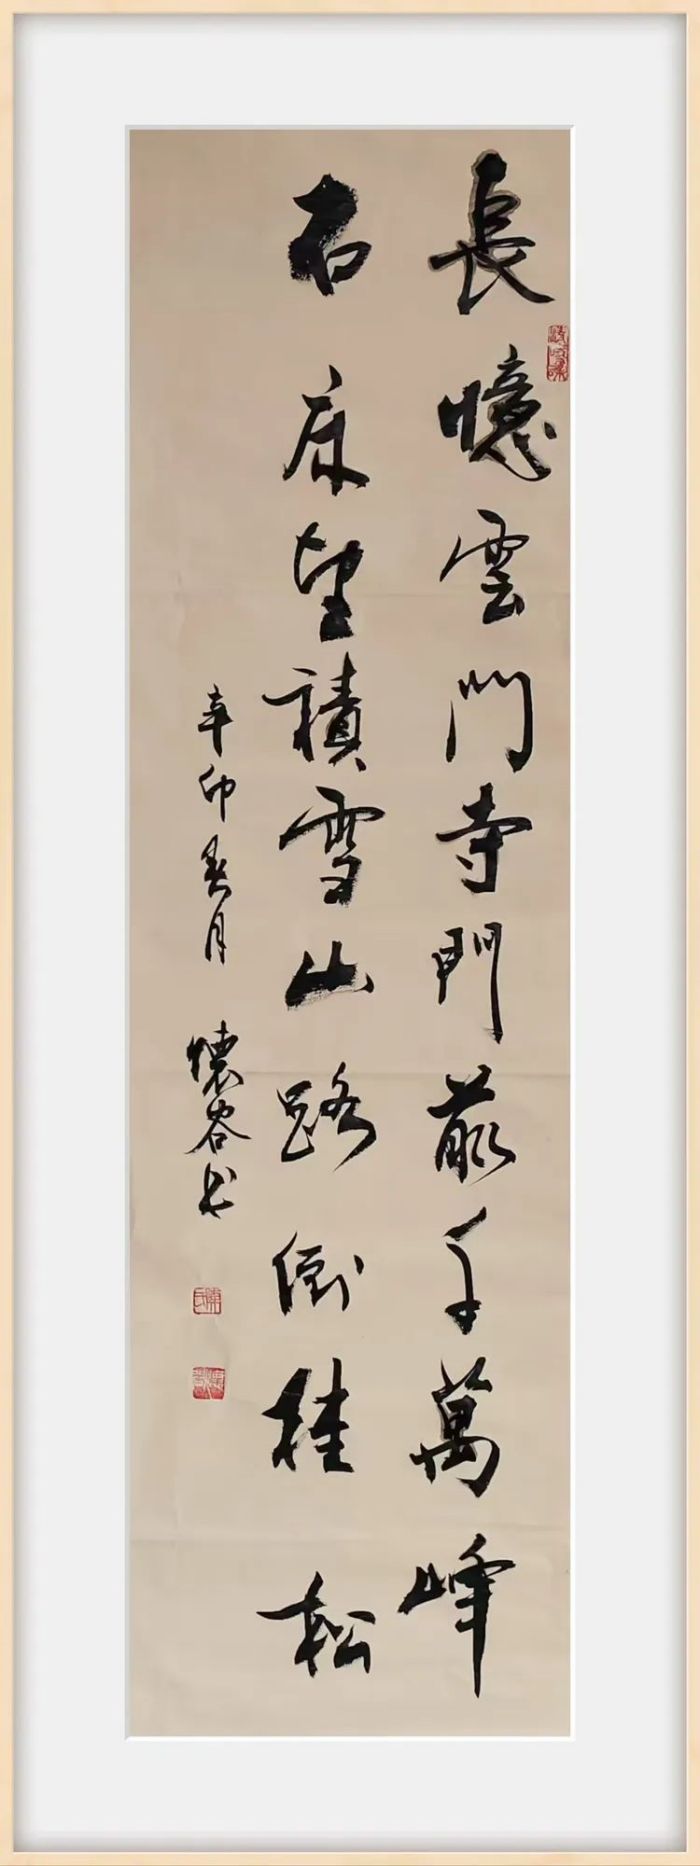 長憶雲門寺門前千萬峰
石床望積雪山路倒桂松
辛卯春月 懷容书